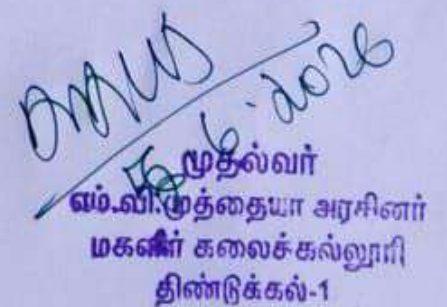 5.6.2026
முதல்வர்
எம்.வி.முத்தையா அரசினர்
மகளிர் கலைக்கல்லூரி
திண்டுக்கல்-1